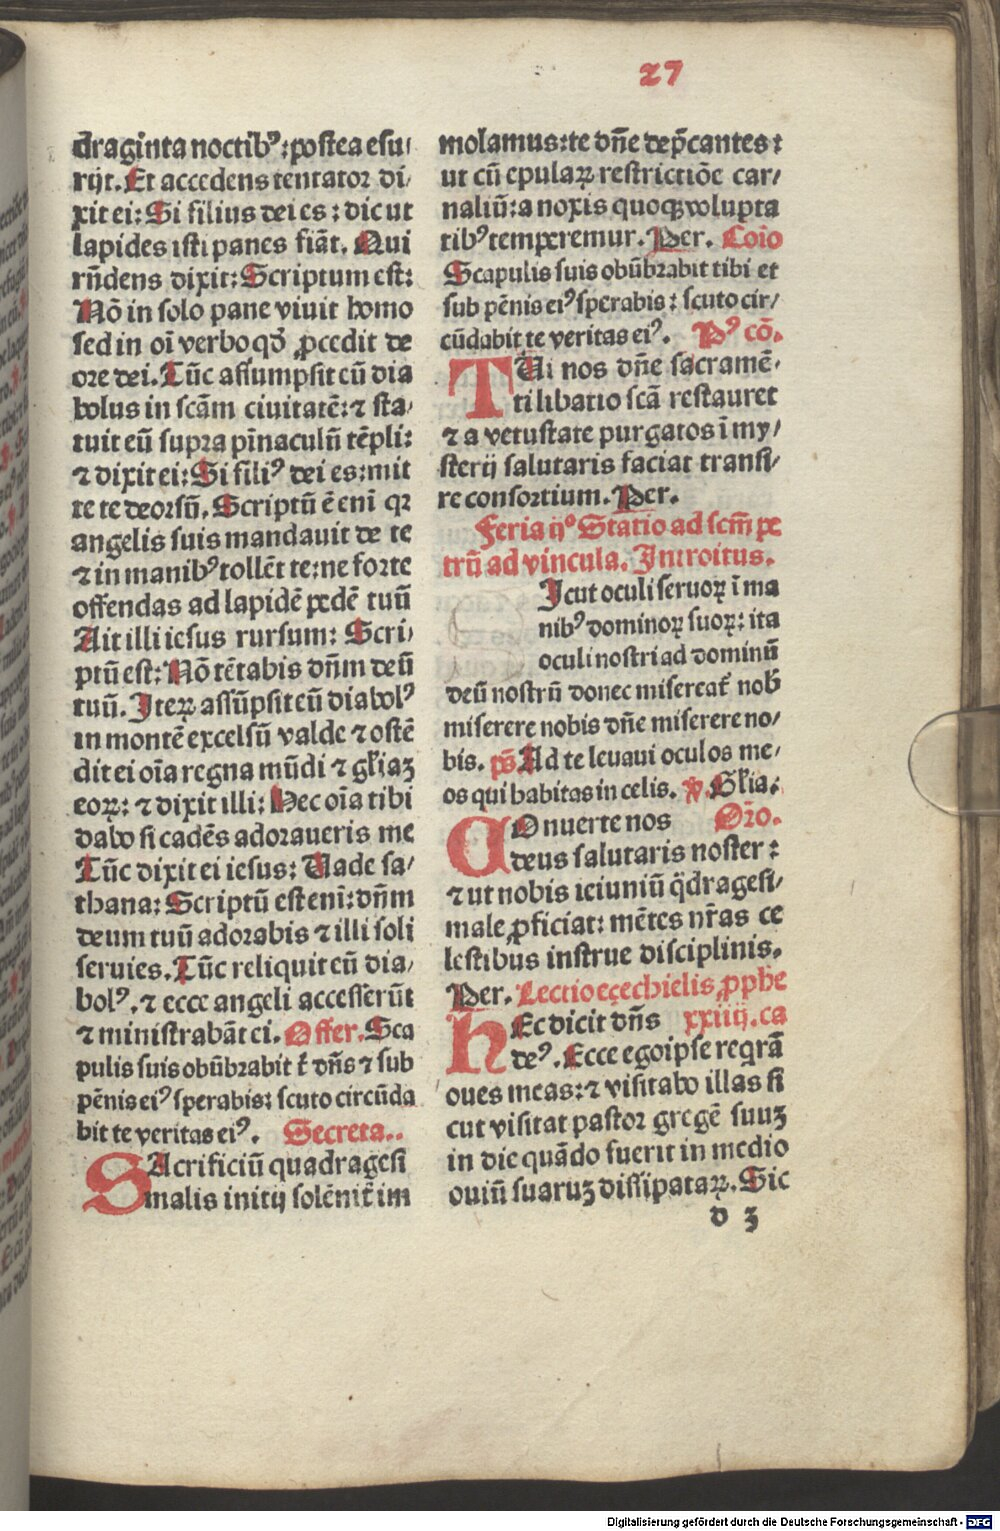 27
draginta noctibꝰ: postea esu/
rijt. Et accedens tentator di/
xit ei: Si filius dei es: dic ut
lapides isti panes fiāt. Qui
rñdens dixit: Scriptum est:
Nō in solo pane viuit homo
sed in oī verbo qđ ꝓcedit de
ore dei. Tūc assumpsit eū dia
bolus in scām ciuitatē: ⁊ sta/
tuit eū supra pīnaculū tēpli:
⁊ dixit ei: Si filiꝰ dei es: mit
te te deorsū. Scriptū ē enī qꝛ
angelis suis mandauit de te
⁊ in manibꝰ tollēt te: ne forte
offendas ad lapidē pedē tuū
Ait illi iesus rursum: Scri/
ptū est: Nō tētabis dñm deū
tuū. Iteꝝ assūpsit eū diabolꝰ
in montē excelsū valde ⁊ ostē
dit ei oīa regna mūdi ⁊ głiaꝫ
eoꝝ: ⁊ dixit illi: Hec oīa tibi
dabo si cadēs adoraueris me
Tūc dixit ei iesus: Uade sa/
thana: Scriptū est enī: dñm
deum tuū adorabis ⁊ illi soli
seruies. Tūc reliquit eū dia/
bolꝰ. ⁊ ecce angeli accesserūt
⁊ ministrabāt ei. Offer. Sca
pulis suis obūbrabit t̄ dñs ⁊ sub
pēnis eiꝰ sperabis: scuto circūda
bit te veritas eiꝰ. Secreta..
SAcrificiū quadragesi
malis initij solēnit̄ im
molamus: te dñe dep̄cantes:
ut cū epulaꝝ restrictiōe car/
naliū: a noxis quoqꝫ volupta
tibꝰ temperemur. Per. Coīo
Scapulis suis obūbrabit tibi et
sub pēnis eiꝰ sperabis: scuto cir/
cūdabit te veritas eiꝰ. Pꝰ cō.
TUi nos dñe sacramē/
ti libatio scā restauret
⁊ a vetustate purgatos ī my/
sterij salutaris faciat transi/
re consortium. Per.
Feria ijᵒ Statio ad scm̄ pe
trū ad vincula. Introitus.
Icut oculi seruoꝝ ī ma
nibꝰ dominoꝝ suoꝝ: ita
oculi nostri ad dominū
deū nostrū donec misereat̄ nob̄
miserere nobis dñe miserere no/
bis. ps̄. Ad te leuaui oculos me/
os qui habitas in celis. ℣. Głia.
COnuerte nos Or̄o.
deus salutaris noster:
⁊ ut nobis ieiuniū q̈dragesi/
male ꝓficiat: mētes nr̄as ce
lestibus instrue disciplinis.
Per. Lectio eçechielis ꝓphe
hEc dicit dñs xxiiij. ca
deꝰ. Ecce ego ipse reqrā
oues meas: ⁊ visitabo illas si
cut visitat pastor gregē suuꝫ
in die quādo fuerit in medio
ouiū suaruꝫ dissipataꝝ. Sic
d 3
Digitalisierung gefördert durch die Deutsche Forschungsgemeinschaft - DFG